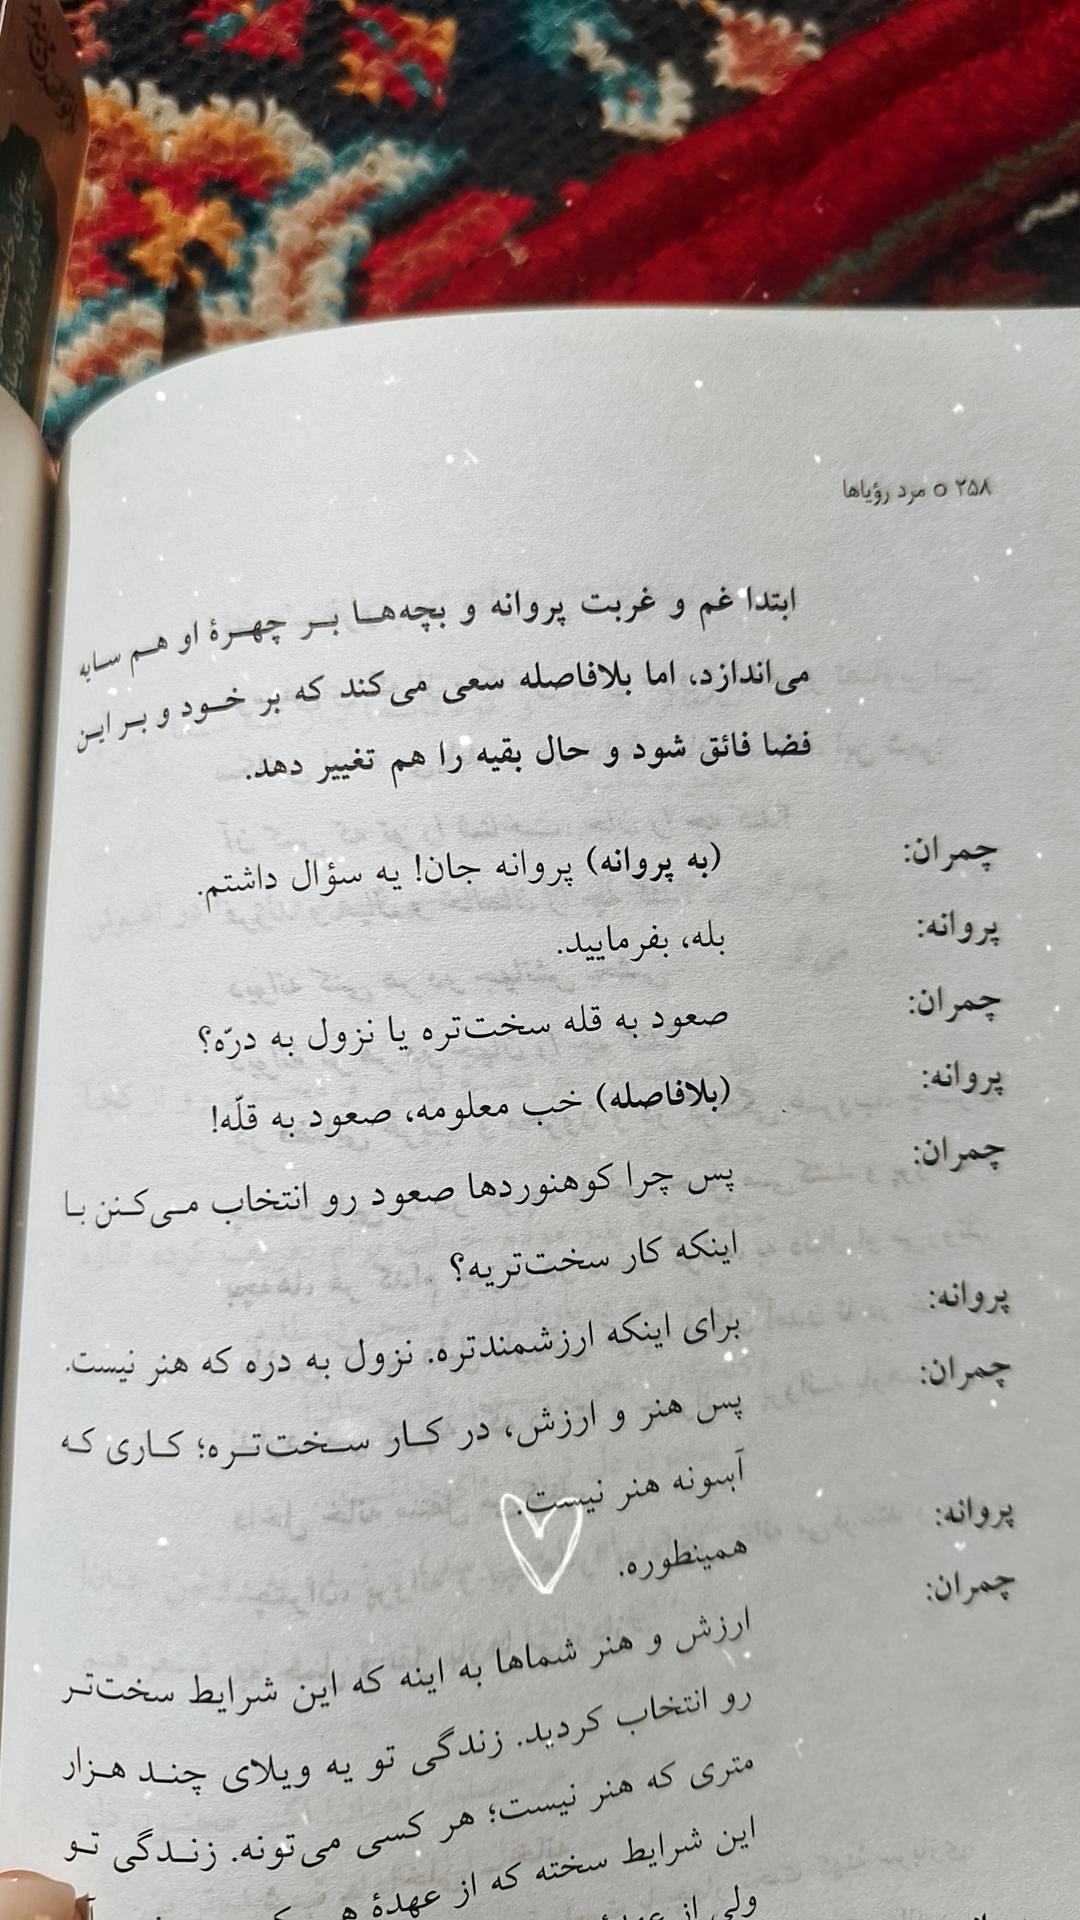 ۲۵۸ ○ مرد رؤیاها
ابتدا غم و غربت پروانه و بچه‌ها بر چهرهٔ او هم سایه
می‌اندازد، اما بلافاصله سعی می‌کند که بر خود و بر این
فضا فائق شود و حال بقیه را هم تغییر دهد.
چمران: (به پروانه) پروانه جان! یه سؤال داشتم.
پروانه: بله، بفرمایید.
چمران: صعود به قله سخت‌تره یا نزول به درّه؟
پروانه: (بلافاصله) خب معلومه، صعود به قلّه!
چمران: پس چرا کوهنوردها صعود رو انتخاب می‌کنن با
اینکه کار سخت‌تریه؟
پروانه: برای اینکه ارزشمندتره. نزول به دره که هنر نیست.
چمران: پس هنر و ارزش، در کار سخت‌تره؛ کاری که
آسونه هنر نیست.
پروانه: همینطوره.
چمران: ارزش و هنر شماها به اینه که این شرایط سخت‌تر
رو انتخاب کردید. زندگی تو یه ویلای چند هزار
متری که هنر نیست؛ هر کسی می‌تونه. زندگی تو
این شرایط سخته که از عهدهٔ
ولی از